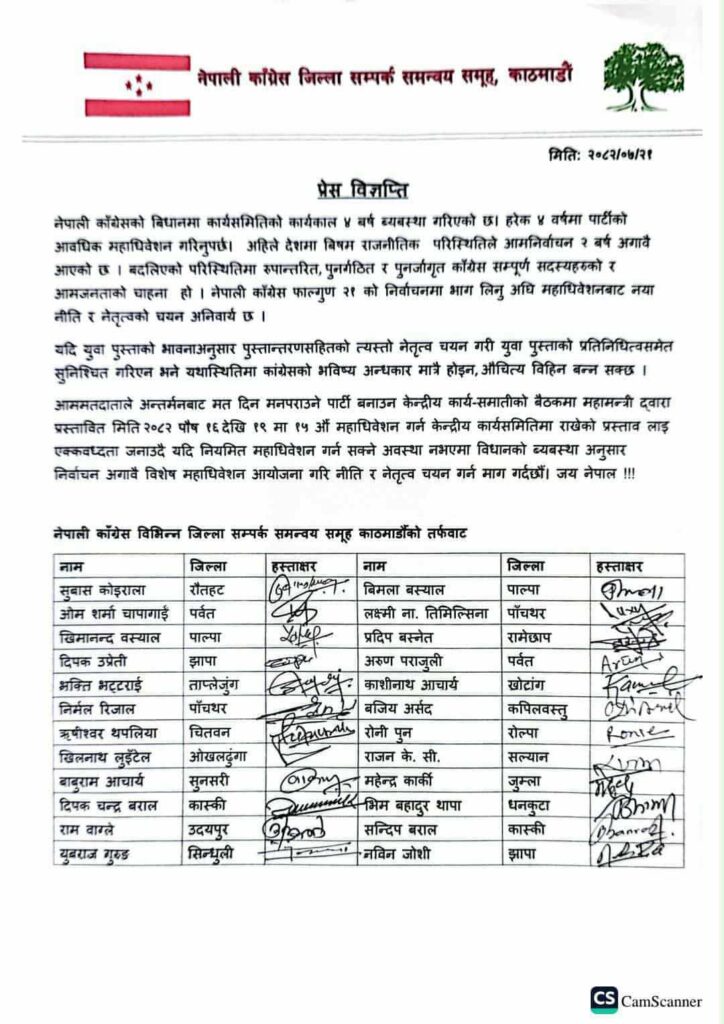 नेपाली काँग्रेस जिल्ला सम्पर्क समन्वय समूह, काठमाडौं
मितिः २०८२/०७/२१
प्रेस विज्ञप्ति
नेपाली काँग्रेसको बिधानमा कार्यसमितिको कार्यकाल ४ बर्ष ब्यबस्था गरिएको छ। हरेक ४ वर्षमा पार्टीको
आवधिक महाधिवेशन गरिनुपर्छ। अहिले देशमा बिषम राजनीतिक परिस्थितिले आमनिर्वाचन २ बर्ष अगावै
आएको छ । बदलिएको परिस्थितिमा रुपान्तरित, पुनर्गठित र पुनर्जागृत काँग्रेस सम्पूर्ण सदस्यहरुको र
आमजनताको चाहना हो । नेपाली काँग्रेस फाल्गुण २१ को निर्वाचनमा भाग लिनु अघि महाधिवेशनबाट नया
नीति र नेतृत्वको चयन अनिवार्य छ ।
यदि युवा पुस्ताको भावनाअनुसार पुस्तान्तरणसहितको त्यस्तो नेतृत्व चयन गरी युवा पुस्ताको प्रतिनिधित्वसमेत
सुनिश्चित गरिएन भने यथास्थितिमा कांग्रेसको भविष्य अन्धकार मात्रै होइन, औचित्य विहिन बन्न सक्छ ।
आममतदाताले अन्तर्मनबाट मत दिन मनपराउने पार्टी बनाउन केन्द्रीय कार्य-समातीको बैठकमा महामन्त्री द्वारा
प्रस्तावित मिति २०८२ पौष १६ देखि १९ मा १५ औं महाधिवेशन गर्न केन्द्रीय कार्यसमितिमा राखेको प्रस्ताव लाइ
एक्कवध्दता जनाउदै यदि नियमित महाधिवेशन गर्न सक्ने अवस्था नभएमा विधानको ब्यवस्था अनुसार
निर्वाचन अगावै विशेष महाधिवेशन आयोजना गरि नीति र नेतृत्व चयन गर्न माग गर्दछौं। जय नेपाल !!!
नेपाली काँग्रेस विभिन्न जिल्ला सम्पर्क समन्वय समूह काठमाडौंको तर्फवाट
नाम जिल्ला हस्ताक्षर नाम जिल्ला हस्ताक्षर
सुबास कोइराला रौतहट बिमला बस्याल पाल्पा
ओम शर्मा चापागाईं पर्वत लक्ष्मी ना. तिमिल्सिना पाँचथर
खिमानन्द वस्याल पाल्पा प्रदिप बस्नेत रामेछाप
दिपक उप्रेती झापा अरुण पराजुली पर्वत
भक्ति भट्टराई ताप्लेजुंग काशीनाथ आचार्य खोटांग
निर्मल रिजाल पाँचथर बजिय अर्सद कपिलवस्तु
ऋषीश्वर थपलिया चितवन रोनी पुन रोल्पा Ronie
खिलनाथ लुइँटेल ओखलढुंगा राजन के. सी. सल्यान
बाबुराम आचार्य सुनसरी महेन्द्र कार्की जुम्ला
दिपक चन्द्र बराल कास्की भिम बहादुर थापा धनकुटा
राम वाग्ले उदयपुर सन्दिप बराल कास्की
युबराज गुरुङ सिन्धुली नविन जोशी झापा
CS CamScanner